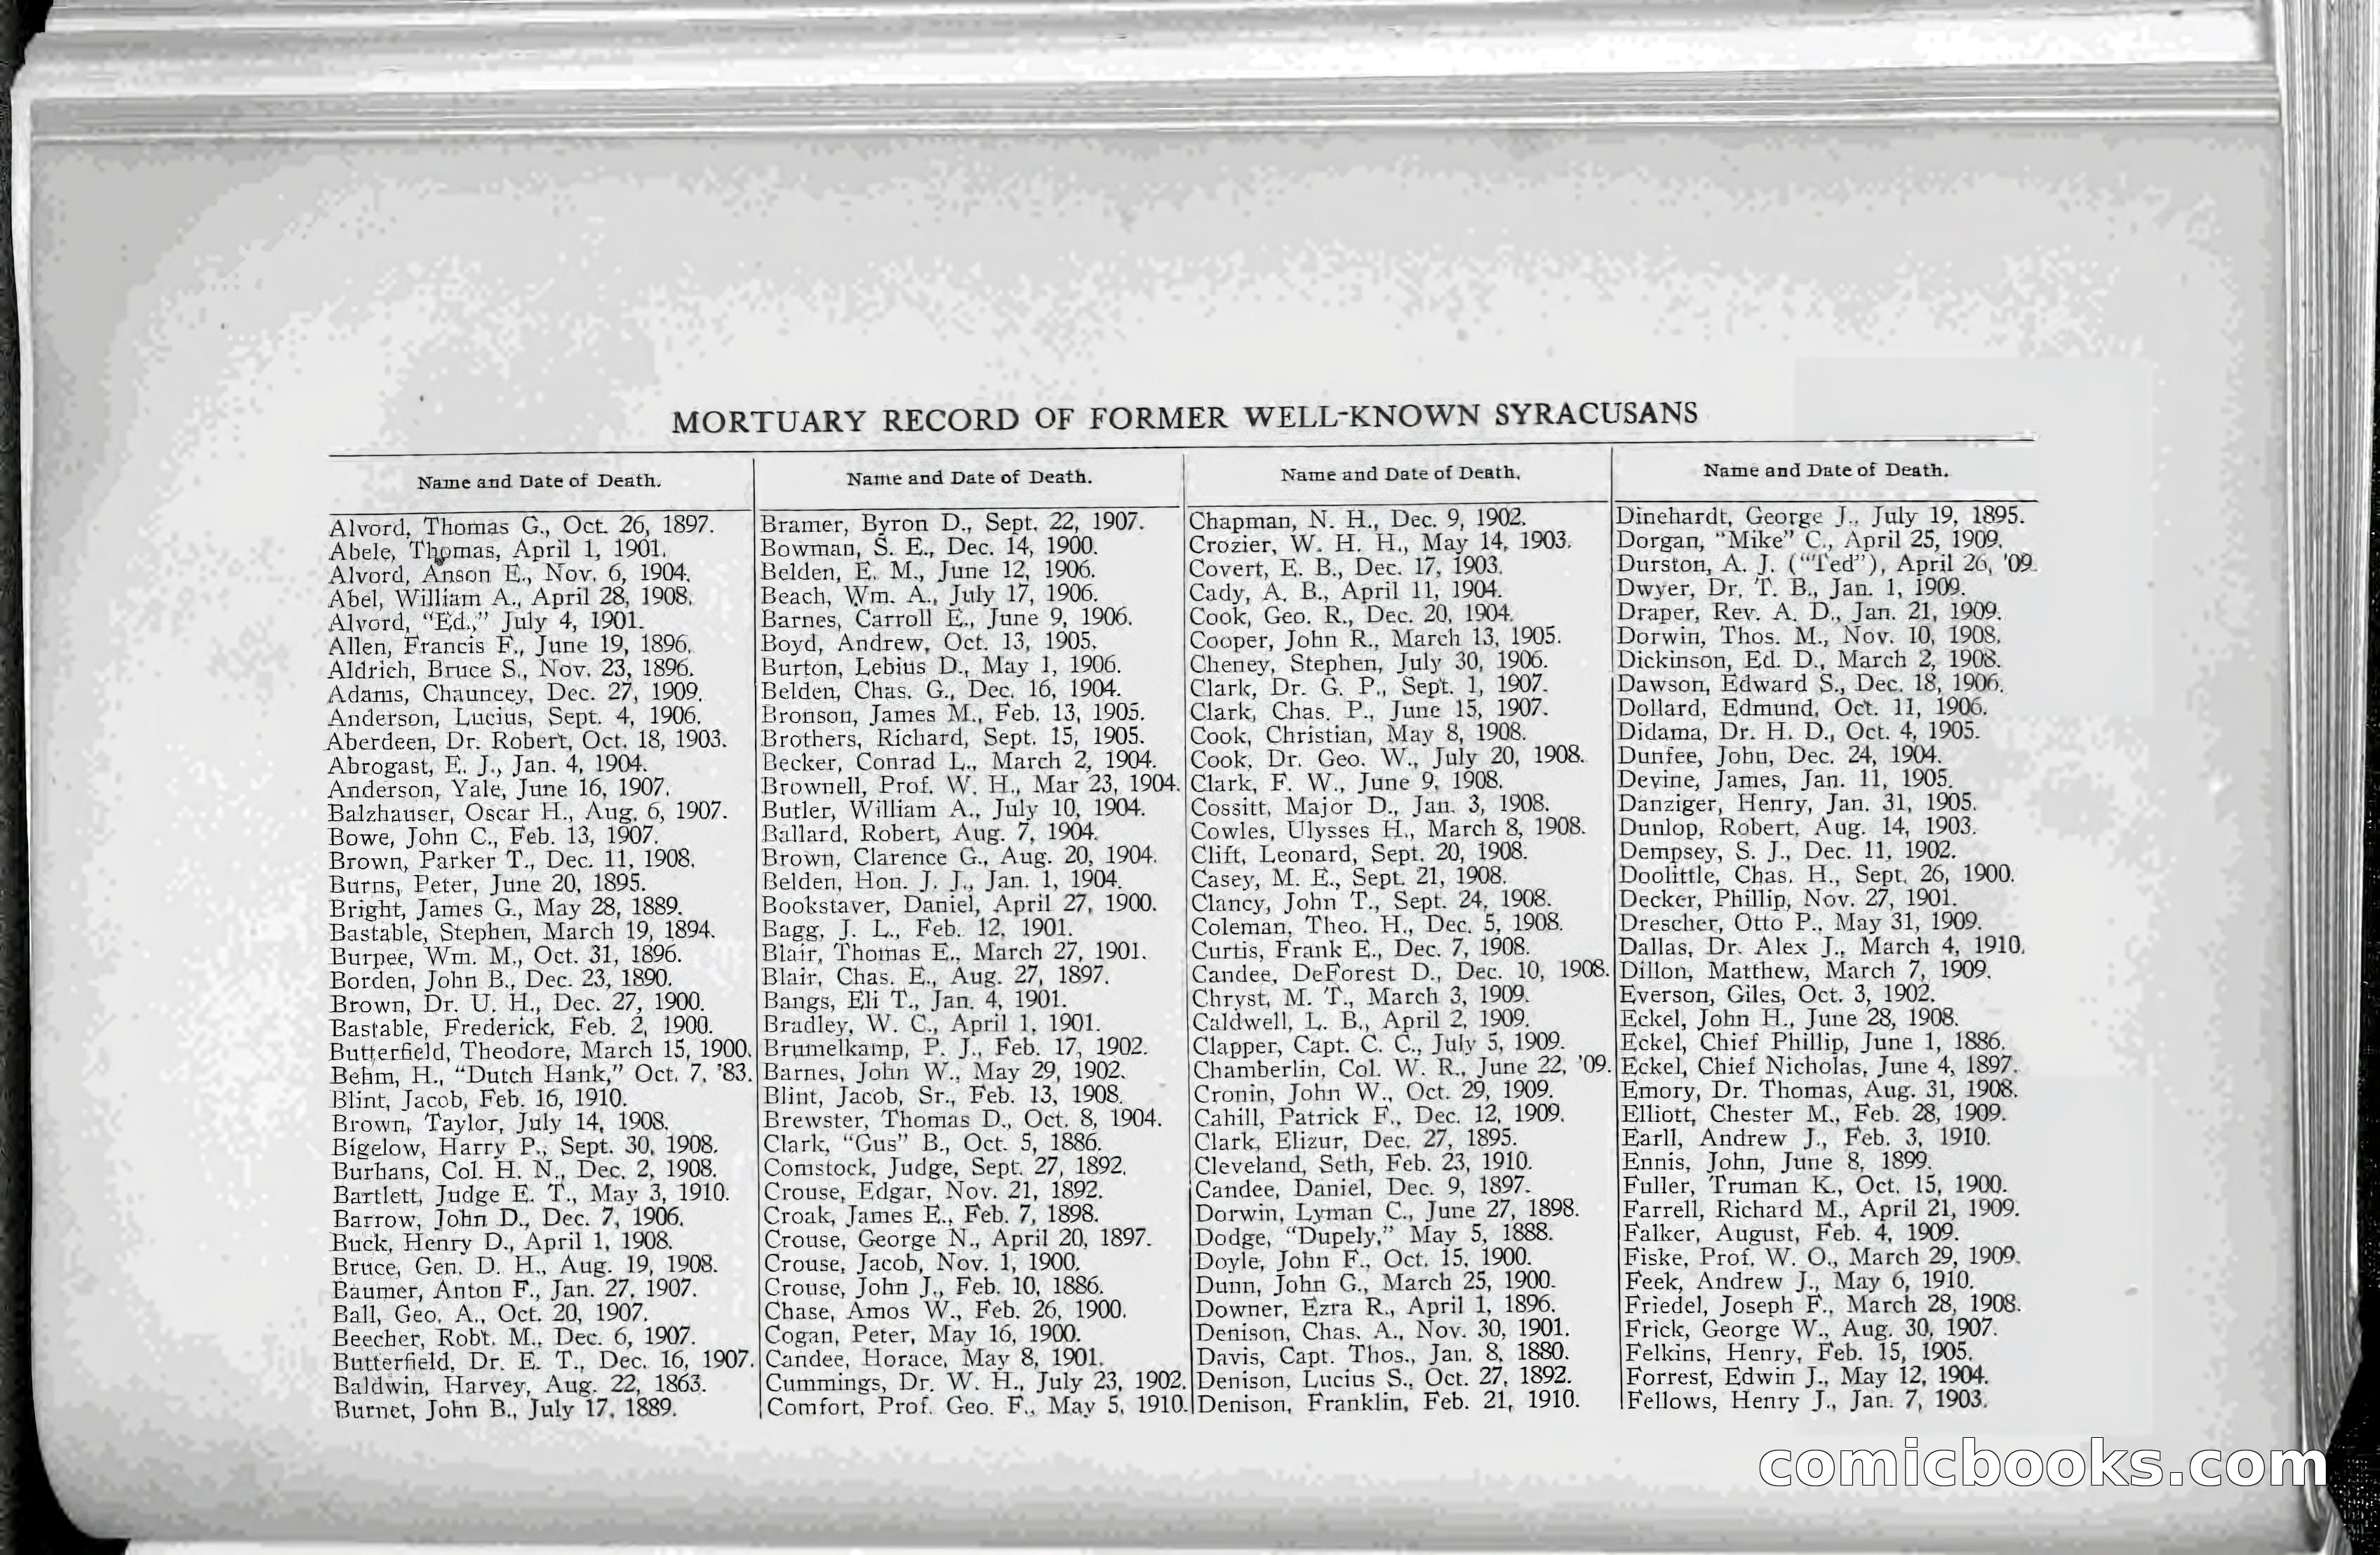 MORTUARY RECORD OF FORMER WELL-KNOWN SYRACUSANS
Name and Date of Death.
Alvord, Thomas G., Oct. 26, 1897.
Abele, Thomas, April 1, 1901.
Alvord, Anson E., Nov. 6, 1904.
Abel, William A., April 28, 1908.
Alvord, "Ed.," July 4, 1901.
Allen, Francis F., June 19, 1896.
Aldrich, Bruce S., Nov. 23, 1896.
Adams, Chauncey, Dec. 27, 1909.
Anderson, Lucius, Sept. 4, 1906.
Aberdeen, Dr. Robert, Oct. 18, 1903.
Abrogast, E. J., Jan. 4, 1904.
Anderson, Yale, June 16, 1907.
Balzhauser, Oscar H., Aug. 6, 1907.
Bowe, John C., Feb. 13, 1907.
Brown, Parker T., Dec. 11, 1908.
Burns, Peter, June 20, 1895.
Bright, James G., May 28, 1889.
Bastable, Stephen, March 19, 1894.
Burpee, Wm. M., Oct. 31, 1896.
Borden, John B., Dec. 23, 1890.
Brown, Dr. U. H., Dec. 27, 1900.
Bastable, Frederick, Feb. 2, 1900.
Butterfield, Theodore, March 15, 1900.
Behm, H., "Dutch Hank," Oct. 7, '83.
Blint, Jacob, Feb. 16, 1910.
Brown, Taylor, July 14, 1908.
Bigelow, Harry P., Sept. 30, 1908.
Burhans, Col. H. N., Dec. 2, 1908.
Bartlett, Judge E. T., May 3, 1910.
Barrow, John D., Dec. 7, 1906.
Buck, Henry D., April 1, 1908.
Bruce, Gen. D. H., Aug. 19, 1908.
Baumer, Anton F., Jan. 27, 1907.
Ball, Geo. A., Oct. 20, 1907.
Beecher, Robt. M., Dec. 6, 1907.
Butterfield, Dr. E. T., Dec. 16, 1907.
Baldwin, Harvey, Aug. 22, 1863.
Burnet, John B., July 17, 1889.
Name and Date of Death.
Bramer, Byron D., Sept. 22, 1907.
Bowman, S. E., Dec. 14, 1900.
Belden, E. M., June 12, 1906.
Beach, Wm. A., July 17, 1906.
Barnes, Carroll E., June 9, 1906.
Boyd, Andrew, Oct. 13, 1905.
Burton, Lebius D., May 1, 1906.
Belden, Chas. G., Dec. 16, 1904.
Bronson, James M., Feb. 13, 1905.
Brothers, Richard, Sept. 15, 1905.
Becker, Conrad L., March 2, 1904.
Brownell, Prof. W. H., Mar 23, 1904.
Butler, William A., July 10, 1904.
Ballard, Robert, Aug. 7, 1904.
Brown, Clarence G., Aug. 20, 1904.
Belden, Hon. J. J., Jan. 1, 1904.
Bookstaver, Daniel, April 27, 1900.
Bagg, J. L., Feb. 12, 1901.
Blair, Thomas E., March 27, 1901.
Blair, Chas. E., Aug. 27, 1897.
Bangs, Eli T., Jan. 4, 1901.
Bradley, W. C., April 1, 1901.
Brumelkamp, P. J., Feb. 17, 1902.
Barnes, John W., May 29, 1902.
Blint, Jacob, Sr., Feb. 13, 1908.
Brewster, Thomas D., Oct. 8, 1904.
Clark, "Gus" B., Oct. 5, 1886.
Comstock, Judge, Sept. 27, 1892.
Crouse, Edgar, Nov. 21, 1892.
Croak, James E., Feb. 7, 1898.
Crouse, George N., April 20, 1897.
Crouse, Jacob, Nov. 1, 1900.
Crouse, John J., Feb. 10, 1886.
Chase, Amos W., Feb. 26, 1900.
Cogan, Peter, May 16, 1900.
Candee, Horace, May 8, 1901.
Cummings, Dr. W. H., July 23, 1902.
Comfort, Prof. Geo. F., May 5, 1910.
Name and Date of Death.
Chapman, N. H., Dec. 9, 1902.
Crozier, W. H. H., May 14, 1903.
Covert, E. B., Dec. 17, 1903.
Cady, A. B., April 11, 1904.
Cook, Geo. R., Dec. 20, 1904.
Cooper, John R., March 13, 1905.
Cheney, Stephen, July 30, 1906.
Clark, Dr. G. P., Sept. 1, 1907.
Clark, Chas. P., June 15, 1907.
Cook, Christian, May 8, 1908.
Cook, Dr. Geo. W., July 20, 1908.
Clark, F. W., June 9, 1908.
Cossitt, Major D., Jan. 3, 1908.
Cowles, Ulysses H., March 8, 1908.
Clift, Leonard, Sept. 20, 1908.
Casey, M. E., Sept. 21, 1908.
Clancy, John T., Sept. 24, 1908.
Coleman, Theo. H., Dec. 5, 1908.
Curtis, Frank E., Dec. 7, 1908.
Candee, DeForest D., Dec. 10, 1908.
Chryst, M. T., March 3, 1909.
Caldwell, L. B., April 2, 1909.
Clapper, Capt. C. C., July 5, 1909.
Chamberlin, Col. W. R., June 22, '09.
Cronin, John W., Oct. 29, 1909.
Cahill, Patrick F., Dec. 12, 1909.
Clark, Elizur, Dec. 27, 1895.
Cleveland, Seth, Feb. 23, 1910.
Candee, Daniel, Dec. 9, 1897.
Dorwin, Lyman C., June 27, 1898.
Dodge, "Dupely," May 5, 1888.
Doyle, John F., Oct. 15, 1900.
Dunn, John G., March 25, 1900.
Downer, Ezra R., April 1, 1896.
Denison, Chas. A., Nov. 30, 1901.
Davis, Capt. Thos., Jan. 8, 1880.
Denison, Lucius S., Oct. 27, 1892.
Denison, Franklin, Feb. 21, 1910.
Name and Date of Death.
Dinehardt, George J., July 19, 1895.
Dorgan, "Mike" C., April 25, 1909.
Durston, A. J. ("Ted"), April 26, '09.
Dwyer, Dr. T. B., Jan. 1, 1909.
Draper, Rev. A. D., Jan. 21, 1909.
Dorwin, Thos. M., Nov. 10, 1908.
Dickinson, Ed. D., March 2, 1908.
Dawson, Edward S., Dec. 18, 1906.
Dollard, Edmund, Oct. 11, 1906.
Didama, Dr. H. D., Oct. 4, 1905.
Dunfee, John, Dec. 24, 1904.
Devine, James, Jan. 11, 1905.
Danziger, Henry, Jan. 31, 1905.
Dunlop, Robert, Aug. 14, 1903.
Dempsey, S. J., Dec. 11, 1902.
Doolittle, Chas. H., Sept. 26, 1900.
Decker, Phillip, Nov. 27, 1901.
Drescher, Otto P., May 31, 1909.
Dallas, Dr. Alex J., March 4, 1910.
Dillon, Matthew, March 7, 1909.
Everson, Giles, Oct. 3, 1902.
Eckel, John H., June 28, 1908.
Eckel, Chief Phillip, June 1, 1886.
Eckel, Chief Nicholas, June 4, 1897.
Emory, Dr. Thomas, Aug. 31, 1908.
Elliott, Chester M., Feb. 28, 1909.
Earll, Andrew J., Feb. 3, 1910.
Ennis, John, June 8, 1899.
Fuller, Truman K., Oct. 15, 1900.
Farrell, Richard M., April 21, 1909.
Falker, August, Feb. 4, 1909.
Fiske, Prof. W. O., March 29, 1909.
Feek, Andrew J., May 6, 1910.
Friedel, Joseph F., March 28, 1908.
Frick, George W., Aug. 30, 1907.
Felkins, Henry, Feb. 15, 1905.
Forrest, Edwin J., May 12, 1904.
Fellows, Henry J., Jan. 7, 1903.
comicbooks.com